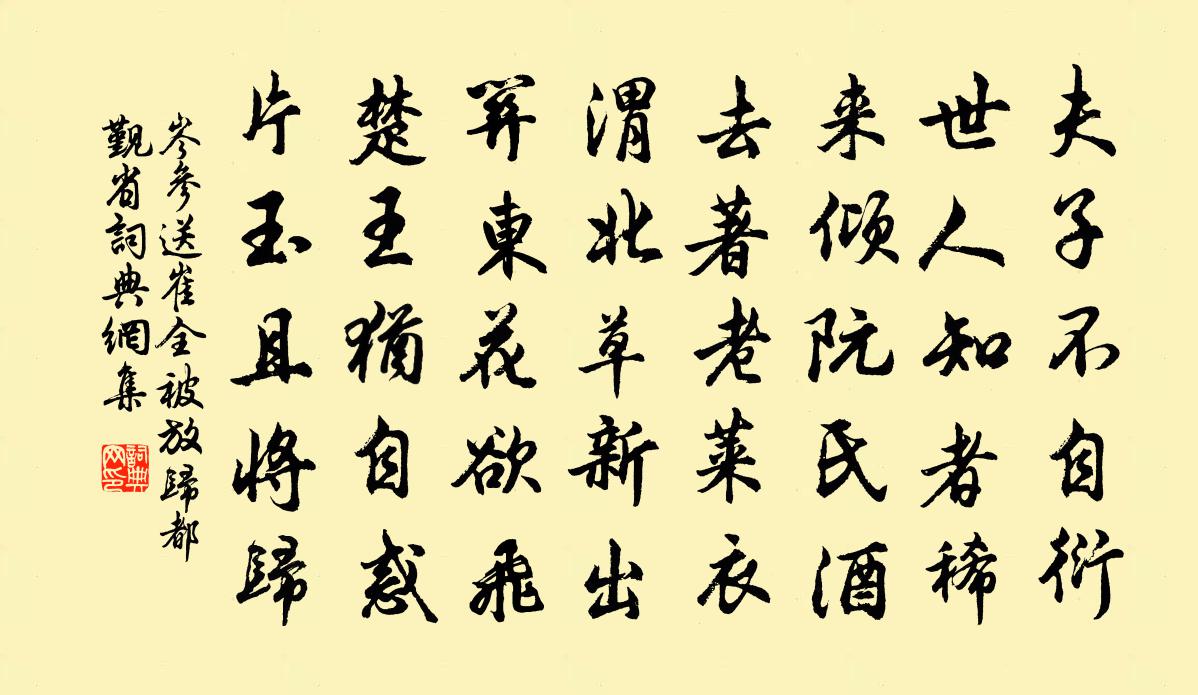 夫子不自衍
世人知者稀
来傾阮氏酒
去著老萊衣
渭北草新出
關東花欲飛
楚王猶自惑
片玉且将歸
岑參送崔全被放歸都
覲省詞典網集
詞典网印